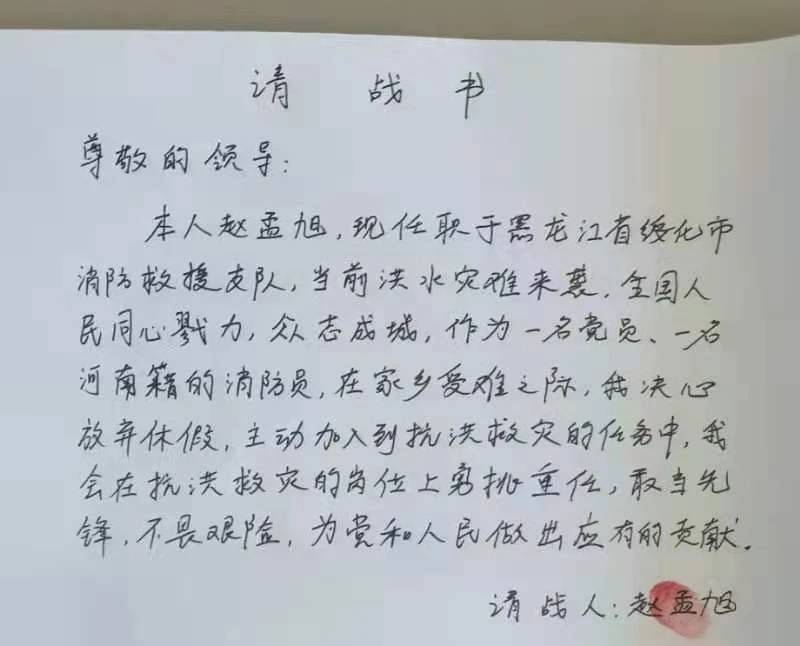 请战书
尊敬的领导：
本人赵孟旭，现任职于黑龙江省绥化市
消防救援支队，当前洪水灾难来袭，全国人
民同心戮力，众志成城，作为一名党员、一名
河南籍的消防员，在家乡受难之际，我决心
放弃休假，主动加入到抗洪救灾的任务中，我
会在抗洪救灾的岗位上勇挑重任，敢当先
锋，不畏艰险，为党和人民做出应有的贡献。
请战人：赵孟旭